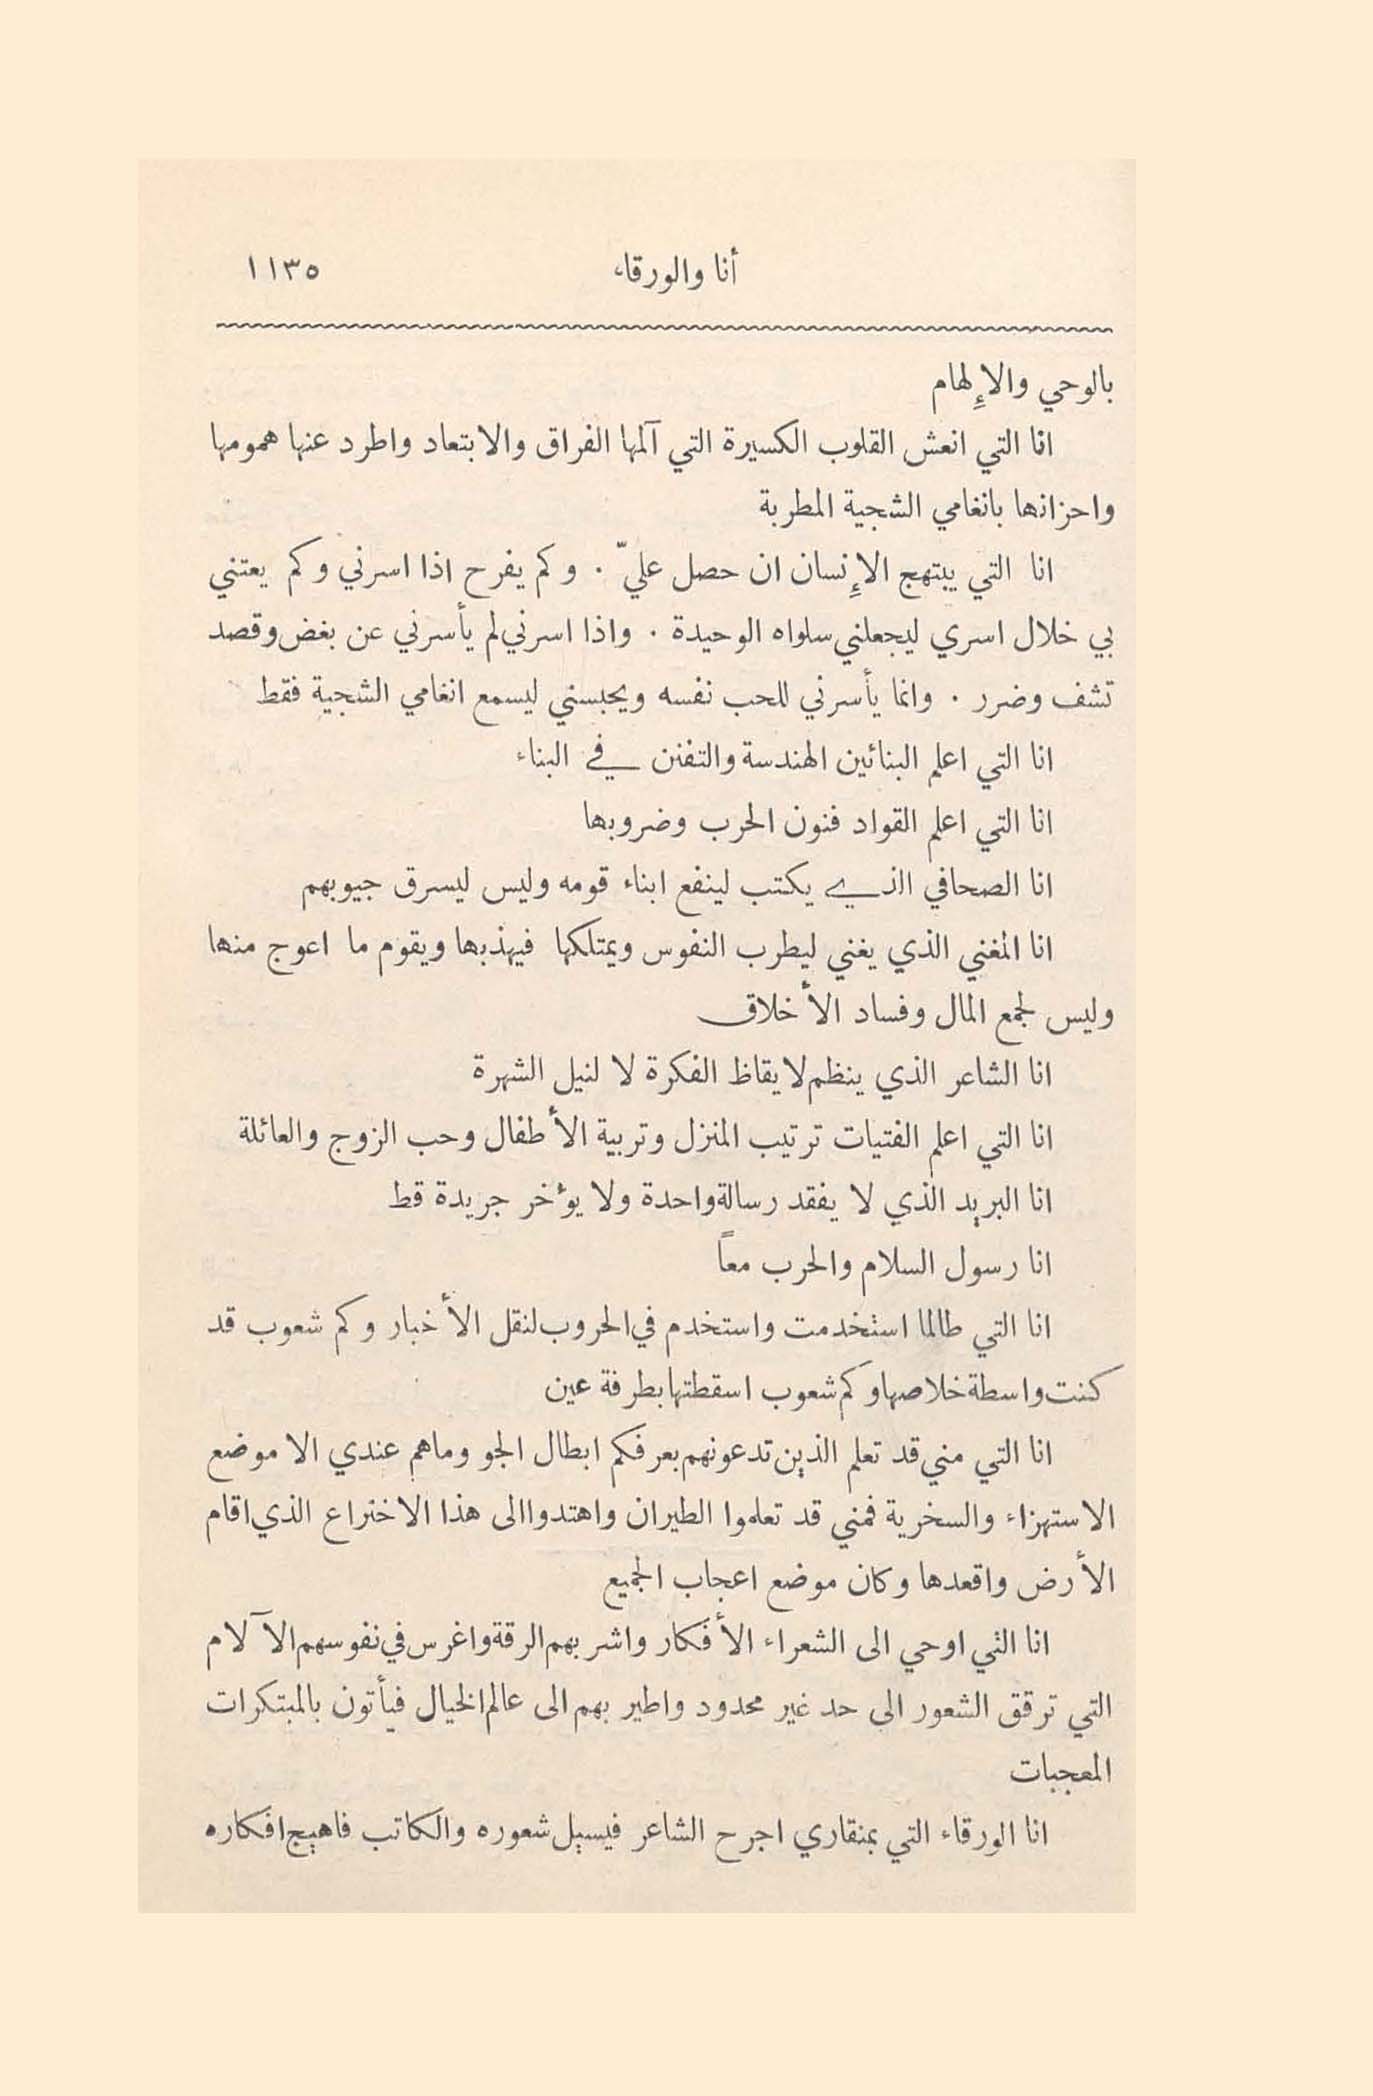 أنا والورقاء ١١٣٥
بالوحي والإلهام
انا التي انعش القلوب الكسيرة التي آلمها الفراق والابتعاد واطرد عنها همومها
واحزانها بانغامي الشجية المطربة
انا التي يبتهج الإنسان ان حصل عليّ . وكم يفرح اذا اسرني وكم يعتني
بي خلال اسري ليجعلني سلواه الوحيدة . واذا اسرني لم يأسرني عن بغض وقصد
تشف وضرر . وانما يأسرني للحب نفسه ويحبسني ليسمع انغامي الشجية فقط
انا التي اعلم البنائين الهندسة والتفنن في البناء
انا التي اعلم القواد فنون الحرب وضروبها
انا الصحافي الذي يكتب لينفع ابناء قومه وليس ليسرق جيوبهم
انا المغني الذي يغني ليطرب النفوس ويمتلكها فيهذبها ويقوم ما اعوج منها
وليس لجمع المال وفساد الأخلاق
انا الشاعر الذي ينظم لايقاظ الفكرة لا لنيل الشهرة
انا التي اعلم الفتيات ترتيب المنزل وتربية الأطفال وحب الزوج والعائلة
انا البريد الذي لا يفقد رسالة واحدة ولا يؤخر جريدة قط
انا رسول السلام والحرب معاً
انا التي طالما استخدمت واستخدم في الحروب لنقل الأخبار وكم شعوب قد
كنت واسطة خلاصها وكم شعوب اسقطتها بطرفة عين
انا التي مني قد تعلم الذين تدعونهم بعرفكم ابطال الجو وماهم عندي الا موضع
الاستهزاء والسخرية فمني قد تعلموا الطيران واهتدوا الى هذا الاختراع الذي اقام
الأرض واقعدها وكان موضع اعجاب الجميع
انا التي اوحي الى الشعراء الأفكار واشربهم الرقة واغرس في نفوسهم الآلام
التي ترقق الشعور الى حد غير محدود واطير بهم الى عالم الخيال فيأتون بالمبتكرات
المعجبات
انا الورقاء التي بمنقاري اجرح الشاعر فيسيل شعوره والكاتب فاهيج افكاره